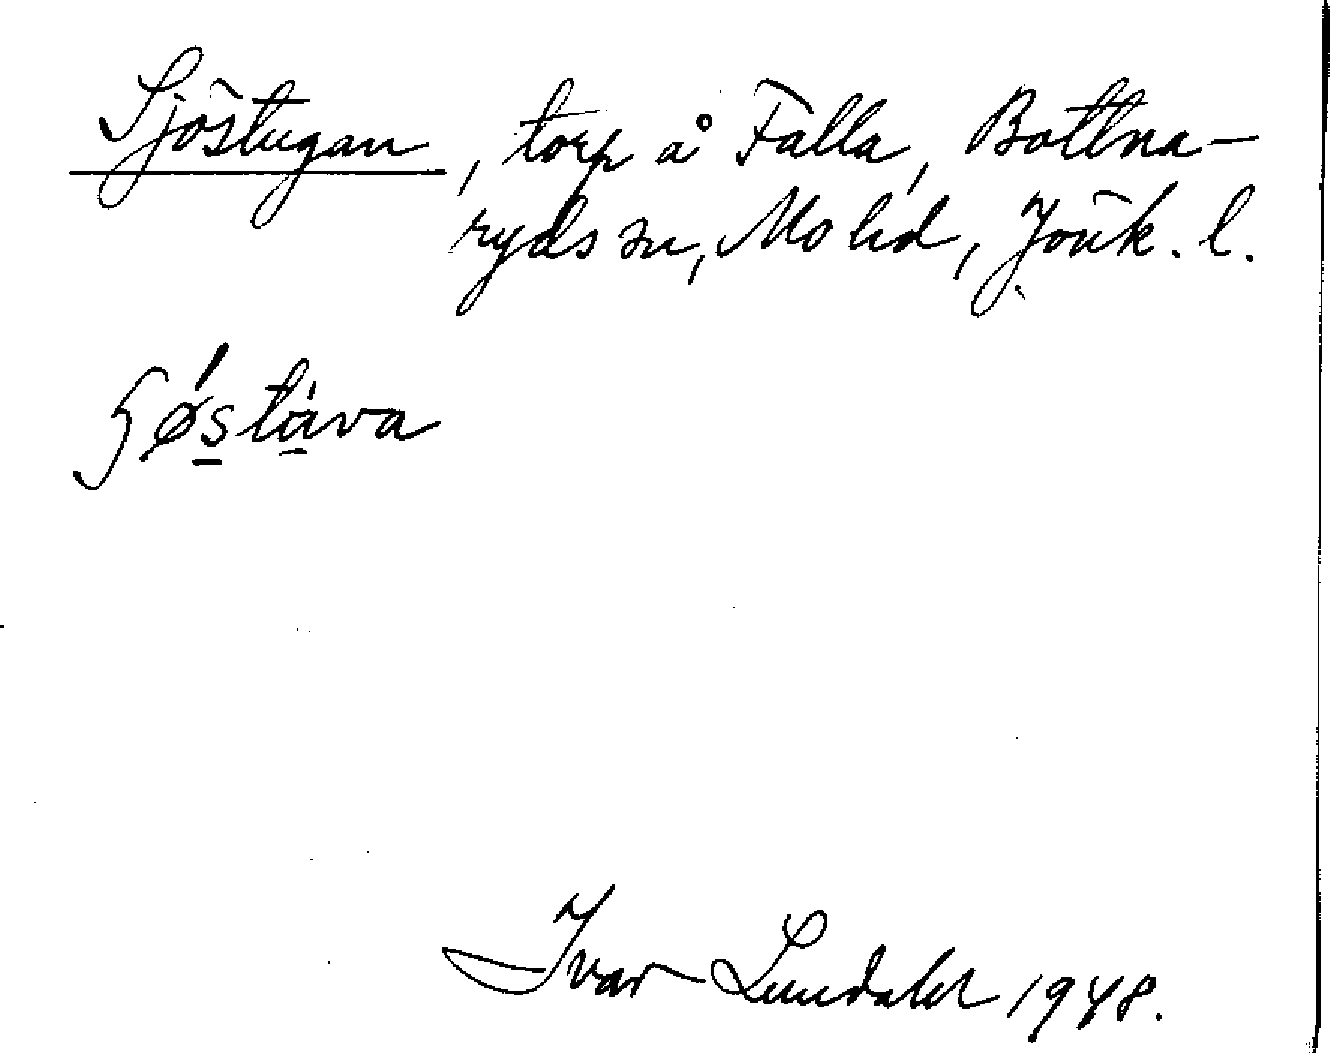 Sjöstugan, torp å Falla, Bottna-
ryds sn, Mo hd, Jönk. l.
ʃǿstȧva
Ivar Lundahl 1948.